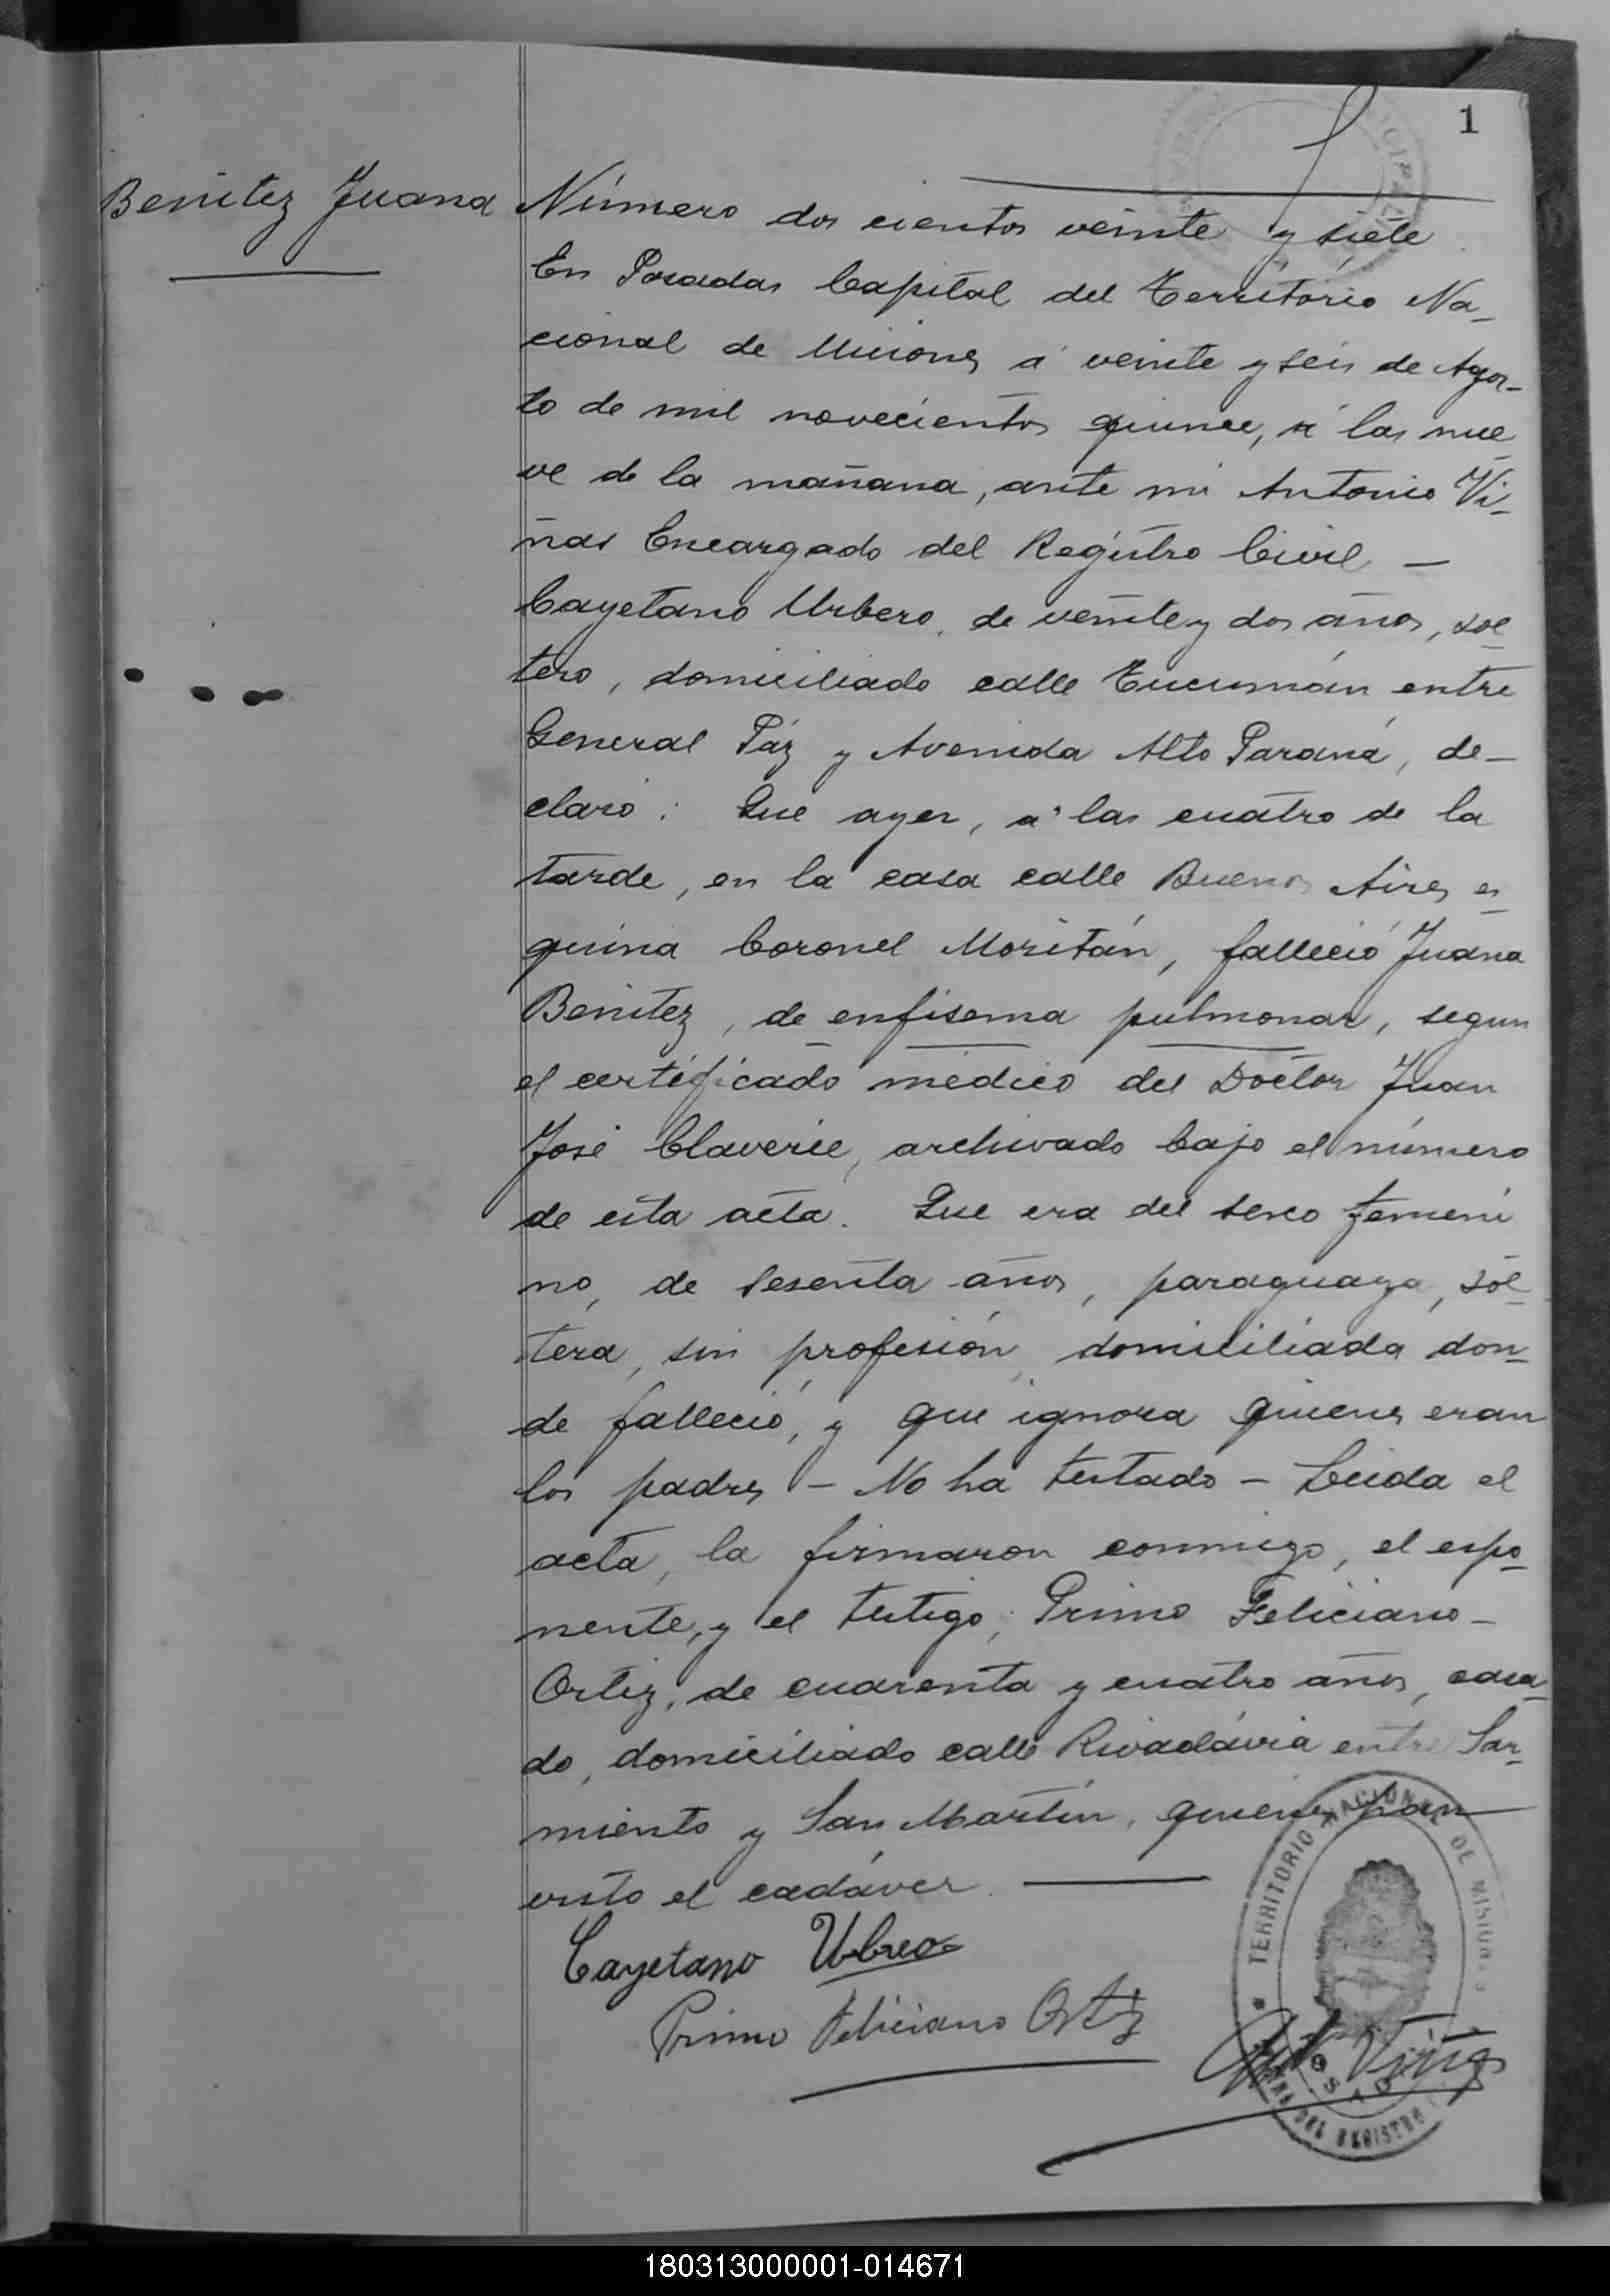 1
Benitez Juana
Número dos cientos veinte y siete
En Posadas Capital del Territorio Na-
cional de Misiones á veinte y seis de Agos-
to de mil novecientos quince, á las nue
ve de la mañana, ante mi Antonio Vi-
ñas Encargado del Registro Civil —
Cayetano Urbero, de veinte y dos años, sol
tero, domiciliado calle Tucumán entre
General Páz y Avenida Alto Paraná, de-
claró: Que ayer, á las cuatro de la
tarde, en la casa calle Buenos Aires es
quina Coronel Moritán, falleció Juana
Benitez, de enfisema pulmonar, segun
el certificado médico del Doctor Juan
José Claverie, archivado bajo el número
de esta acta. Que era del sexo femeni
no, de sesenta años, paraguaya, sol
tera, sin profesión, domiciliada don-
de falleció, y que ignora quienes eran
los padres - No ha testado - Leida el
acta, la firmaron conmigo, el espo-
nente, y el testigo, Primo Feliciano -
Ortiz, de cuarenta y cuatro años, casa-
do, domiciliado calle Rivadávia entre Sar-
miento y San Martín, quienes han
visto el cadáver. —
Cayetano
Primo Feliciano Ortiz
TERRITORIO NACIONAL DE MISIONES
Viñas
DEL REGISTRO
180313000001-014671